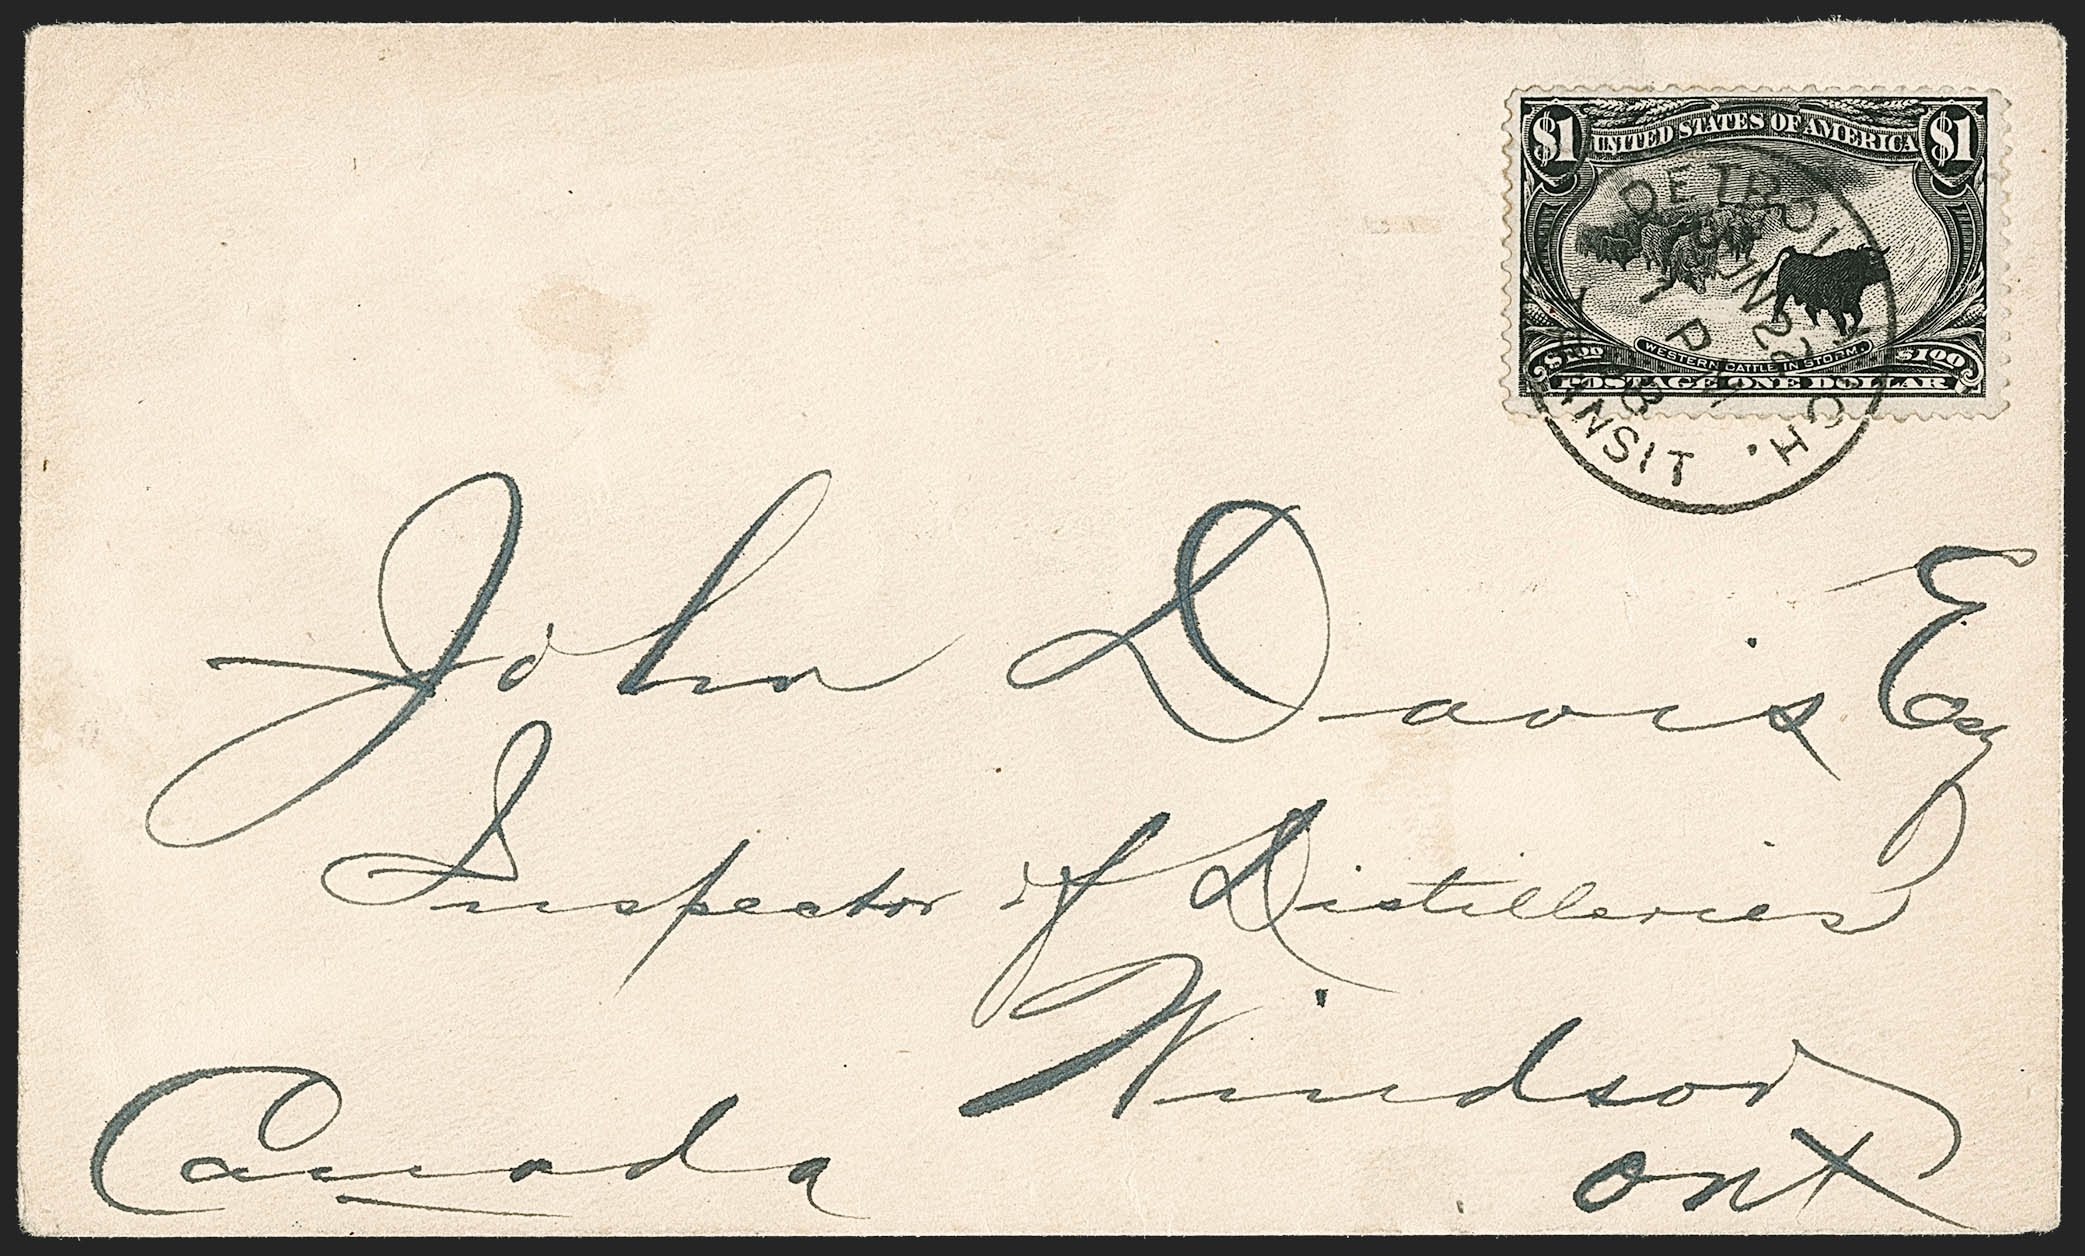 $1 UNITED STATES OF AMERICA $1
WESTERN CATTLE IN STORM.
$100 $100
POSTAGE ONE DOLLAR
DETROIT, MICH.
JUN 22
1 PM
98
TRANSIT
John Davis Esq
Inspector of Distilleries
Windsor
Ont
Canada